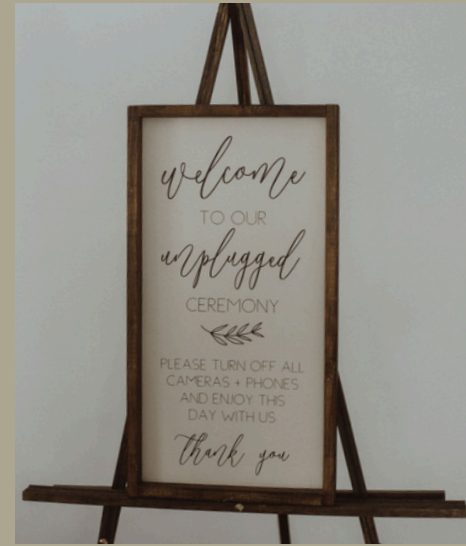 welcome
TO OUR
unplugged
CEREMONY
PLEASE TURN OFF ALL
CAMERAS + PHONES
AND ENJOY THIS
DAY WITH US
thank you